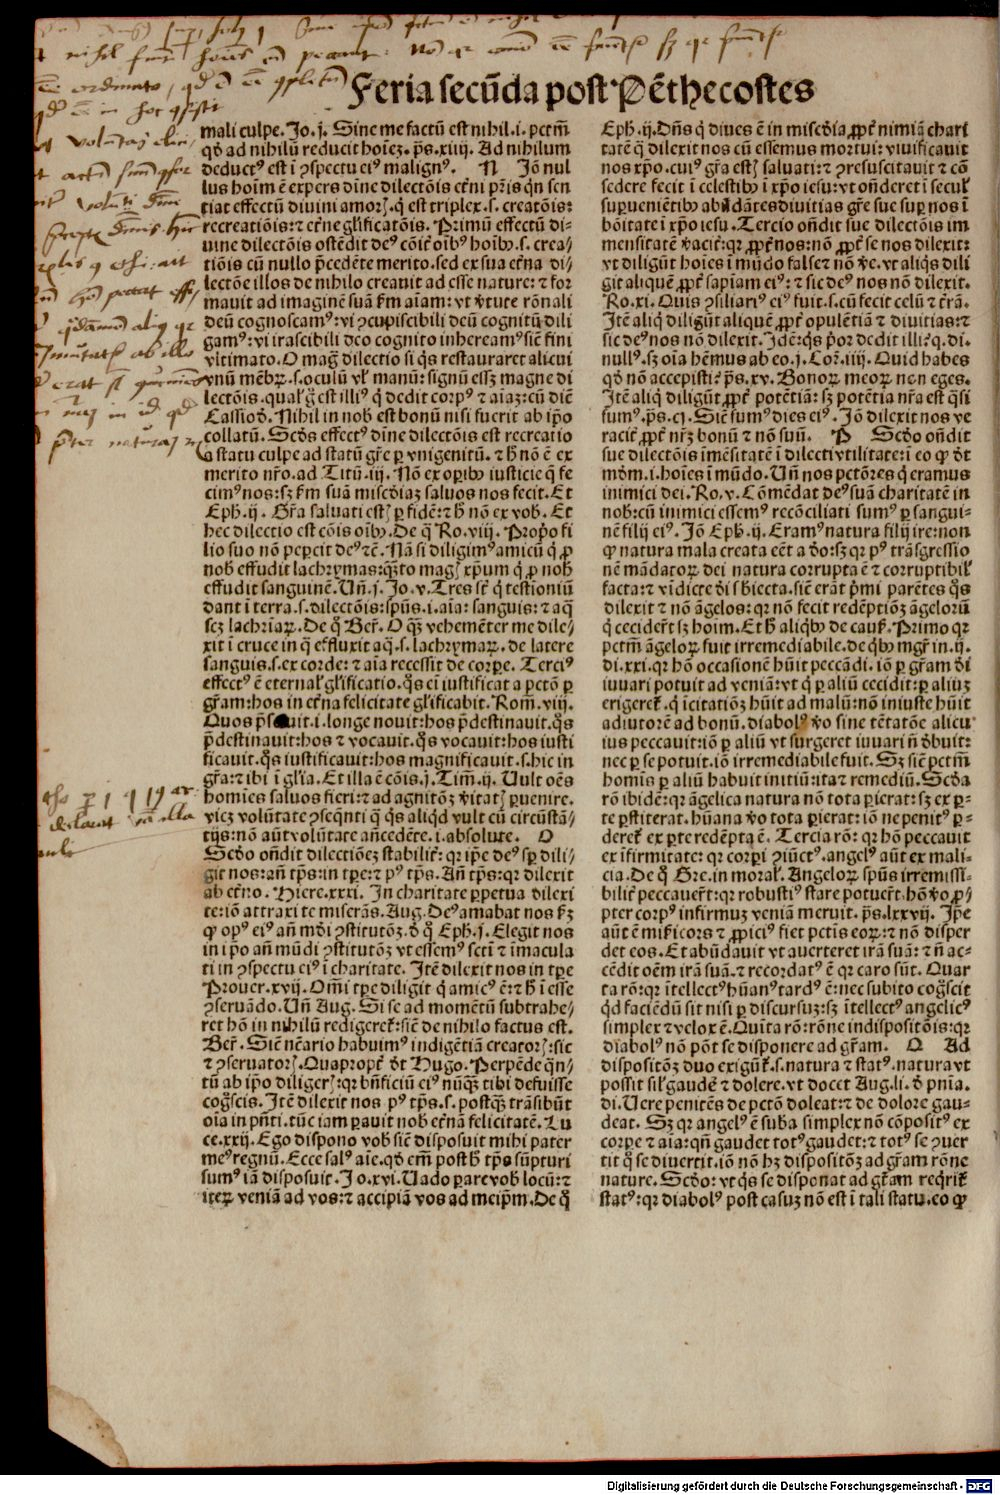 Feria secūda post Pēthecostes
mali culpe. Jo. j. Sine me factū est nihil. i. pctm̄
qd̓ ad nihilū reducit hoīez. p̄s. xiiij. Ad nihilum
deduct⁹ est ī ꝯspectu ei⁹ malign⁹. N Jō nul
lus hoīm ē expers dīne dilectōis et̓ni pr̄is qn̄ sen
tiat effectū diuini amoꝝ. q̄ est triplex. s. creatōis:
recreatiōis: ⁊ et̓ne gl̓ificatōis. Primū effectū di⸗
uine dilectōis ostēdit de⁹ cōit̓ oīb⁹ hoīb⁹. s. crea/
tiōis cū nullo p̄cedēte merito. sed ex sua et̓na di/
lectōe illos de nihilo creauit ad esse nature: ⁊ for
mauit ad imaginē suā k̓m aīam: vt v̓tute rōnali
deū cognoscam⁹: vi ꝯcupiscibili deū cognitū dili
gam⁹: vi irascibili deo cognito inhereamꝰ siē fini
vltimato. O mag̓ dilectio si q̄s restauraret alicui
vnū mēbꝝ. s. oculū vl̓ manū: signū essꝫ magne di
lectōis. qual̓ g̓ est illi⁹ q̄ dedit corp⁹ ⁊ aīaz: cū diē
Cassiod̓. Nihil in nob̓ est bonū nisi fuerit ab ip̄o
collatū. Scd̓s effect⁹ dīne dilectōis est recreatio
a statu culpe ad statū gr̄e ꝑ vnigenitū. ⁊ h̓ nō ē ex
merito nr̄o. ad Titū. iij. Nō ex oꝑib⁹ iusticie q̄ fe
cim⁹ nos: sꝫ k̓m suā miscd̓iaꝫ saluos nos fecit. Et
Eph. ij. Gr̄a saluati estꝭ ꝑ fidē: ⁊ h̓ nō ex vob̓. Et
hec dilectio est cōis oīb⁹. De q̄ Ro. viij. Prop̓o fi
lio suo nō peꝑcit de⁹ ⁊c̄. Nā si diligim⁹ amicū q̄ ꝓ
nob̓ effudit lachrymas: q̄ꝫto magꝭ xp̄um q̄ ꝓ nob̓
effudit sanguinē. Uñ. j. Jo. v. Tres sūt q̄ testīoniū
dant ī terra. s. dilectōis: sp̄us. i. aīa: sanguis: ⁊ aq̄
scꝫ lachrīaꝝ. De q̄ Ber̄. O q̄ꝫ vehemēter me dile/
xit ī cruce in q̄ effluxit aq̄. s. lachrymaꝝ. de latere
sanguis. s. ex corde: ⁊ aīa recessit de corpe. Terci⁹
effect⁹ ē eternal̓ gl̓ificatio. q̄s eī iustificat a pctō ꝑ
gr̄am: hos in et̓na felicitate gl̓ificabit. Rom̄. viij.
Quos p̄s uit. i. longe nouit: hos p̄destinauit. q̄s
p̄destinauit: hos ⁊ vocauit. q̄s vocauit: hos iusti
ficauit. q̄s iustificauit: hos magnificauit. s. hic in
gr̄a: ⁊ ibi ī gl̓ia. Et illa ē cōis. j. Tim̄. ij. Uult oēs
homīes saluos fieri: ⁊ ad agnitōꝫ v̓itatꝭ ꝑuenire.
vicꝫ volūtate ꝯseqn̄ti q̄ q̄s aliqd̓ vult cū circūstā⸗
tijs: nō aūt volūtate añcedēte. i. absolute. O
Scd̓o oñdit dilectiōeꝫ stabilit̓: qr ip̄e de⁹ sꝑ dili/
git nos: añ tp̄s: in tp̄e: ⁊ p⁹ tp̄s. Añ tp̄s: qr dilexit
ab et̓no. Hiere. xxxi. In charitate ꝑpetua dilexi
te: iō attraxi te miserās. Aug. De⁹ amabat nos k̓ꝫ
ꝙ op⁹ ei⁹ añ mūdi ꝯstitutōꝫ. d̓ q̄ Eph. j. Elegit nos
in ip̄o añ mūdi ꝯstitutōꝫ vt essem⁹ sctī ⁊ īmacula
ti in ꝯspectu ei⁹ ī charitate. Itē dilexit nos in tp̄e
Prouer. xvij. Om̄i tp̄e diligit q̄ amic⁹ ē: ⁊ h̓ ī esse
ꝯseruādo. Uñ Aug. Si se ad momētū subtrahe/
ret hō in nihilū redigeret̓: siē de nihilo factus est.
Ber̄. Siē nēario habuim⁹ indigētiā creatorꝭ: sic
⁊ ꝯseruatorꝭ. Quapropt̓ d̓t Hugo. Perpēde qn̄⸗
tū ab ip̄o diligerꝭ: qr bn̄ficiū ei⁹ nūq̄ꝫ tibi defuisse
cog̓scis. Itē dilexit nos p⁹ tp̄s. s. postq̄ꝫ trāsibūt
oīa in pn̄ti. tūc iam ꝑauit nob̓ et̓nā felicitatē. Lu
ce. xxij. Ego dispono vob̓ siē disposuit mihi pater
me⁹ regnū. Ecce sal⁹ aīe. qd̓ em̄ post h̓ tp̄s sūpturi
sum⁹ iā disposuit. Jo. xvi. Uado parare vob̓ locū: ⁊
iteꝝ veniā ad vos: ⁊ accipiā vos ad meip̄m. De q̄
Eph. ij. Dn̄s q̄ diues ē in miscd̓ia ꝓpt̓ nimiā chari
tatē q̄ dilexit nos cū essemus mortui: viuificauit
nos xp̄o. cui⁹ gr̄a estꝭ saluati: ⁊ ꝯresuscitauit ⁊ cō
sedere fecit ī celestib⁹ ī xp̄o iesu: vt oñderet ī secul̓
suꝑuenientib⁹ abūdātes diuitias gr̄e sue suꝑ nos ī
bōitate ī xp̄o iesu. Tercio oñdit sue dilectōis im
mensitatē v̓acit̓: qr ꝓpt̓ nos: nō ꝓpt̓ se nos dilexit:
vt diligūt hoīes ī mūdo false ⁊ nō v̓e. vt aliq̄s dili
git aliquē ꝓpt̓ sapīam ei⁹: ⁊ sic de⁹ nos nō dilexit.
Ro. xi. Quis ꝯsiliari⁹ ei⁹ fuit. s. cū fecit celū ⁊ t̓rā.
Itē aliq̄ diligūt aliquē ꝓpt̓ opulētiā ⁊ diuitias: ⁊
sic de⁹ nos nō dilexit. Idē: q̄s p̓or dedit illi: q̄. di.
null⁹. sꝫ oīa hēmus ab eo. j. Cor̄. iiij. Quid habes
qd̓ nō accepisti: p̄s. xv. Bonoꝝ meoꝝ non eges.
Itē aliq̄ diligūt ꝓpt̓ potētiā: sꝫ potētia nr̄a est q̄si
fum⁹. p̄s. cj. Siē fum⁹ dies ei⁹. Jō dilexit nos ve
racit̓ ꝓpt̓ nr̄ꝫ bonū ⁊ nō suū. P Scd̓o oñdit
sue dilectōis īmēsitatē ī dilecti vtilitate: ī eo ꝙ d̓t
mūdm. i. hoīes ī mūdo. Uñ nos pctōres q̄ eramus
inimici dei. Ro. v. Cōmēdat de⁹ suā charitatē in
nob̓: cū inimici essem⁹ recōciliati sum⁹ ꝑ sangui⸗
nē filij ei⁹. Jō Eph. ij. Eram⁹ natura filij ire: non
ꝙ natura mala creata eēt a d̓o: sꝫ qr p⁹ trāsgressio
nē mādatoꝝ dei natura corrupta ē ⁊ corruptibil̓
facta: ⁊ vīdicte d̓i sb̓iecta. siē erāt p̓mi parētes q̄s
dilexit ⁊ nō āgelos: qr nō fecit redēptiōꝫ āgeloꝝ
q̄ ceciderūt sꝫ hoīm. Et h̓ aliq̄b⁹ de causꝭ. Primo qr
pctm̄ āgeloꝝ fuit irremediabile. de q̄b⁹ mgr̄ in. ij.
di. xxi. qr hō occasionē hūit peccādi. iō ꝑ gr̄am d̓i
iuuari potuit ad veniā: vt q̄ ꝑ aliū cecidit: ꝑ aliuꝫ
erigeret̓. q̄ īcitatiōꝫ hūit ad malū: nō iniuste hūit
adiutorē ad bonū. diabol⁹ v̓o sine tētatōe alicu
ius peccauit: iō ꝑ aliū vt surgeret iuuari ñ d̓buit:
nec ꝑ se potuit. iō irremediabile fuit. Sꝫ siē pctm̄
homīs ꝑ aliū habuit initiū: ita ⁊ remediū. Scd̓a
rō ibidē: qr āgelica natura nō tota ꝑierat: sꝫ ex ꝑ⸗
te ꝑstiterat. hūana v̓o tota ꝑierat: iō ne penit⁹ ꝑ⸗
deret̓ ex ꝑte redēpta ē. Tercia rō: qr hō peccauit
ex īfirmitate: qr corꝑi ꝯiūct⁹. angel⁹ aūt ex mali⸗
cia. De q̄ Gre. in moral̓. Angeloꝝ sp̄us irremissi⸗
bilit̓ peccauer̄t: qr robusti⁹ stare potuer̄t. hō v̓o ꝓ/
pter corp⁹ infirmuꝫ veniā meruit. p̄s. lxxvij. Ip̄e
aūt ē mik̓icors ⁊ ꝓpici⁹ fiet pctīs eoꝝ: ⁊ nō disper
det eos. Et abūdauit vt auerteret irā suā: ⁊ ñ ac⸗
cēdit oēm irā suā. ⁊ recordat⁹ ē qr caro sūt. Quar
ta rō: qr ītellect⁹ hūan⁹ tard⁹ ē: nec subito cog̓scit
qd̓ faciēdū sit nisi ꝑ discursuꝫ: sꝫ ītellect⁹ angelic⁹
simplex ⁊ velox ē. Quīta rō: rōne indispositōis: qr
diabol⁹ nō pōt se disponere ad gr̄am. Q Ad
dispositōꝫ duo exigūt̓. s. natura ⁊ stat⁹. natura vt
possit sil̓ gaudē ⁊ dolere. vt docet Aug. li. d̓ pn̄ia.
di. Uere penitēs de pctō doleat: ⁊ de dolore gau⸗
deat. Sꝫ qr angel⁹ ē suba simplex nō cōposit⁹ ex
corpe ⁊ aīa: qñ gaudet tot⁹ gaudet: ⁊ tot⁹ se ꝯuer
tit q̄ se diuertit. iō nō hꝫ dispositōꝫ ad gr̄am rōne
nature. Scd̓o: vt q̄s se disponat ad gr̄am req̄rit̓
stat⁹: qr diabol⁹ post casuꝫ nō est ī tali statu. eo ꝙ
Digitalisierung gefördert durch die Deutsche Forschungsgemeinschaft - DFG